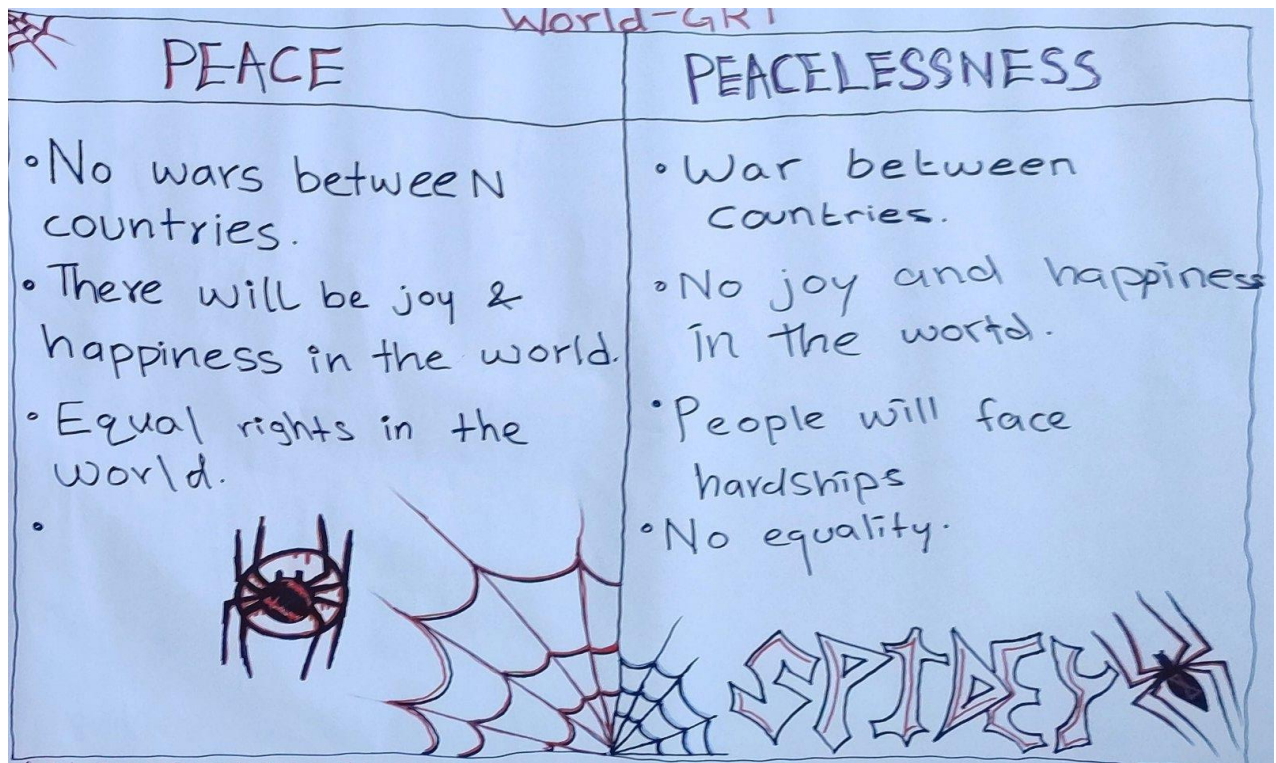 World-GRT
PEACE
PEACELESSNESS
•No wars betweeN
countries.
•There will be joy &
happiness in the world.
•Equal rights in the
world.
•
•War between
countries.
•No joy and happiness
in the world.
•People will face
hardships
•No equality.
SPIDEY